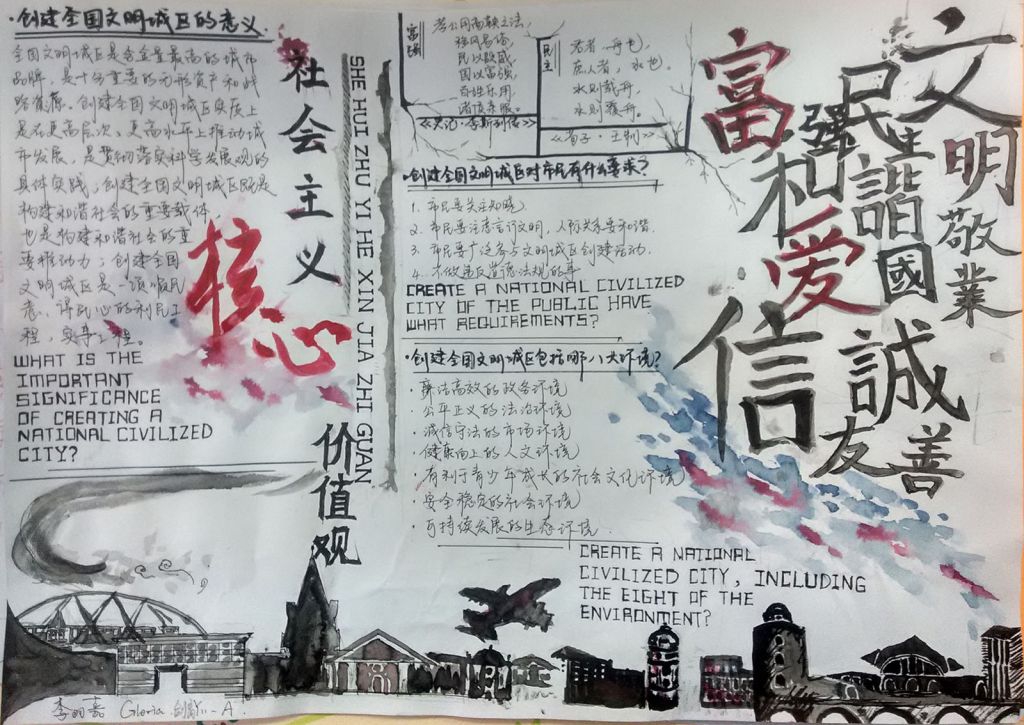 ·创建全国文明城区的意义
全国文明城区是含金量最高的城市
品牌，是十分重要的无形资产和战
略资源。创建全国文明城区实质上
是在更高层次、更高水平上推动城
市发展，是贯彻落实科学发展观的
具体实践；创建全国文明城区既是
构建和谐社会的重要载体，
也是构建和谐社会的重
要推动力；创建全国
文明城区是一项顺民
意、得民心的利民工
程，实事工程。
WHAT IS THE
IMPORTANT
SIGNIFICANCE
OF CREATING A
NATIONAL CIVILIZED
CITY?
社会主义
核心
价值观
SHE HUI ZHU YI HE XIN JIA ZHI GUAN
富强
孝公用商鞅之法，
移风易俗，
民以殷盛，
国以富强，
百姓乐用，
诸侯亲服。
《史记·李斯列传》
民主
君者，舟也，
庶人者，水也。
水则载舟，
水则覆舟。
《荀子·王制》
·创建全国文明城区对市民有什么要求？
1. 市民要关注知晓。
2. 市民要注意言行文明，人际关系要和谐。
3. 市民要广泛参与文明城区创建活动。
4. 不做违反道德法规的事
CREATE A NATIONAL CIVILIZED
CITY OF THE PUBLIC HAVE
WHAT REQUIREMENTS?
·创建全国文明城区包括哪八大环境？
·廉洁高效的政务环境
·公平正义的法治环境
·诚信守法的市场环境
·健康向上的人文环境
·有利于青少年成长的社会文化环境
·安全稳定的社会环境
·可持续发展的生态环境
CREATE A NATIONAL
CIVILIZED CITY, INCLUDING
THE EIGHT OF THE
ENVIRONMENT?
富强
民主
文明
和諧
愛國
敬業
誠信
友善
Gloria